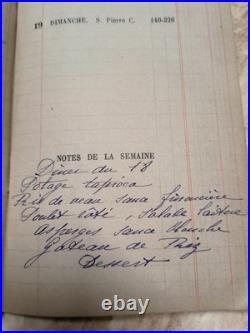 19 DIMANCHE. S. Pierre C. 140-226
NOTES DE LA SEMAINE
Dîner du 18
Potage tapioca
Riz de veau sauce financière
Poulet rôti, Salade laitue
Asperges sauce blanche
Gateau de Riz
Dessert